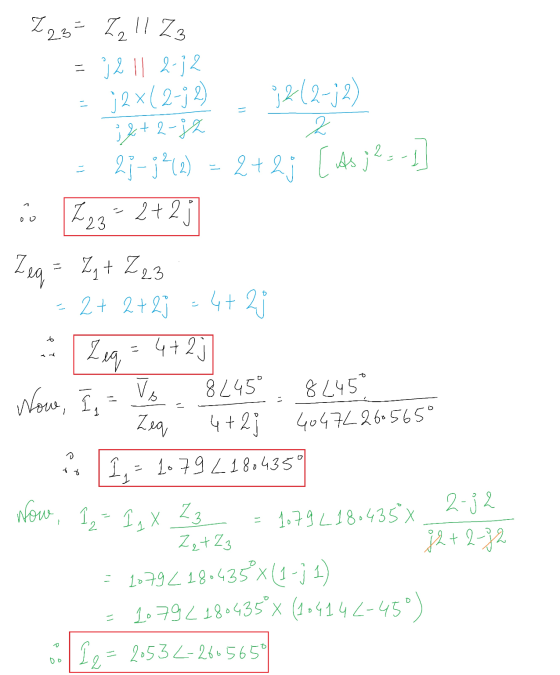 Z₂₃ = Z₂ || Z₃
= j2 || 2-j2
= j2×(2-j2) / j2+2-j2 = j2(2-j2) / 2
= 2j-j²(2) = 2+2j [As j²=-1]
∴ Z₂₃ = 2+2j
Zeq = Z₁ + Z₂₃
= 2+ 2+2j = 4+2j
∴ Zeq = 4+2j
Now, Ī₁ = V̄s / Zeq = 8∠45° / 4+2j = 8∠45° / 4.47∠26.565°
∴ I₁ = 1.79∠18.435°
Now, I₂ = I₁ × Z₃ / Z₂+Z₃ = 1.79∠18.435° × 2-j2 / j2+2-j2
= 1.79∠18.435°×(1-j1)
= 1.79∠18.435°×(1.414∠-45°)
∴ I₂ = 2.53∠-26.565°